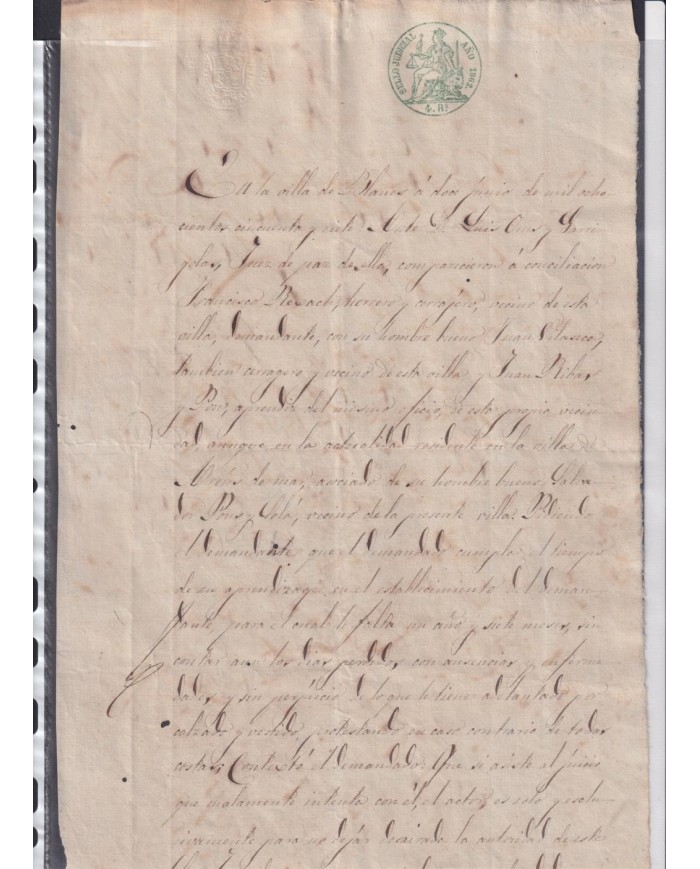 SELLO JUDICIAL AÑO 1862.
4. Rs
En la villa de Blanes á doce junio de mil ocho
cientos cincuenta y siete Ante D. Luis Oms y Garri
golas, Juez de paz de ella, comparecieron á conciliacion
Francisco Rexach, herrero y cerrajero, vecino de esta
villa, demandante, con su hombre bueno Juan Vilaseca,
tambien cerragero y vecino de esta villa y Juan Ribas
y Pons, aprendiz del mismo oficio, de esta propia vecin
dad, aunque en la actualidad residente en la villa de
Arens de mar, asociado de su hombre bueno Salva
dor Pons y Solá, vecino de la presente villa. Pidiendo
el demandante que el demandado cumpla el tiempo
de su aprendizage en el establecimiento del deman-
dante para el cual le falta un año y siete meses, sin
contar aun los dias perdidos con ausencias y enferme
dades, y sin perjuicio de lo que le tiene adelantado por
calzado y vestido, protestando en caso contrario de todas
costas; Contestó el demandado: Que si asiste al juicio
que malamente intenta con él, el actor, es solo y esclu
sivamente para no dejar desairada la autoridad de este